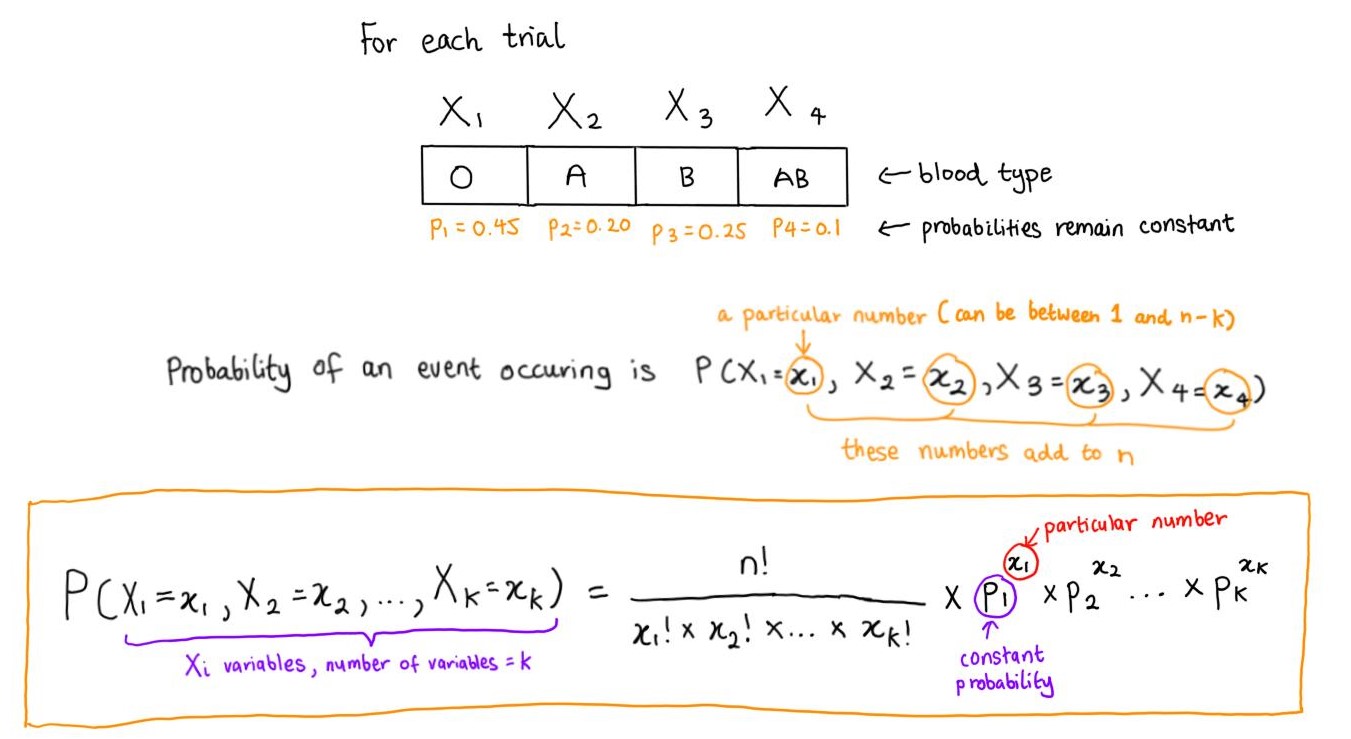 For each trial
X₁ X₂ X₃ X₄
O A B AB ← blood type
P₁ = 0.45 P₂ = 0.20 P₃ = 0.25 P₄ = 0.1 ← probabilities remain constant
a particular number (can be between 1 and n-k)
Probability of an event occuring is P(X₁ = x₁, X₂ = x₂, X₃ = x₃, X₄ = x₄)
these numbers add to n
particular number
P(X₁ = x₁, X₂ = x₂, ..., X_k = x_k) = n! / (x₁! × x₂! × ... × x_k!) × P₁^x₁ × P₂^x₂ ... × P_k^x_k
Xi variables, number of variables = k
constant
probability